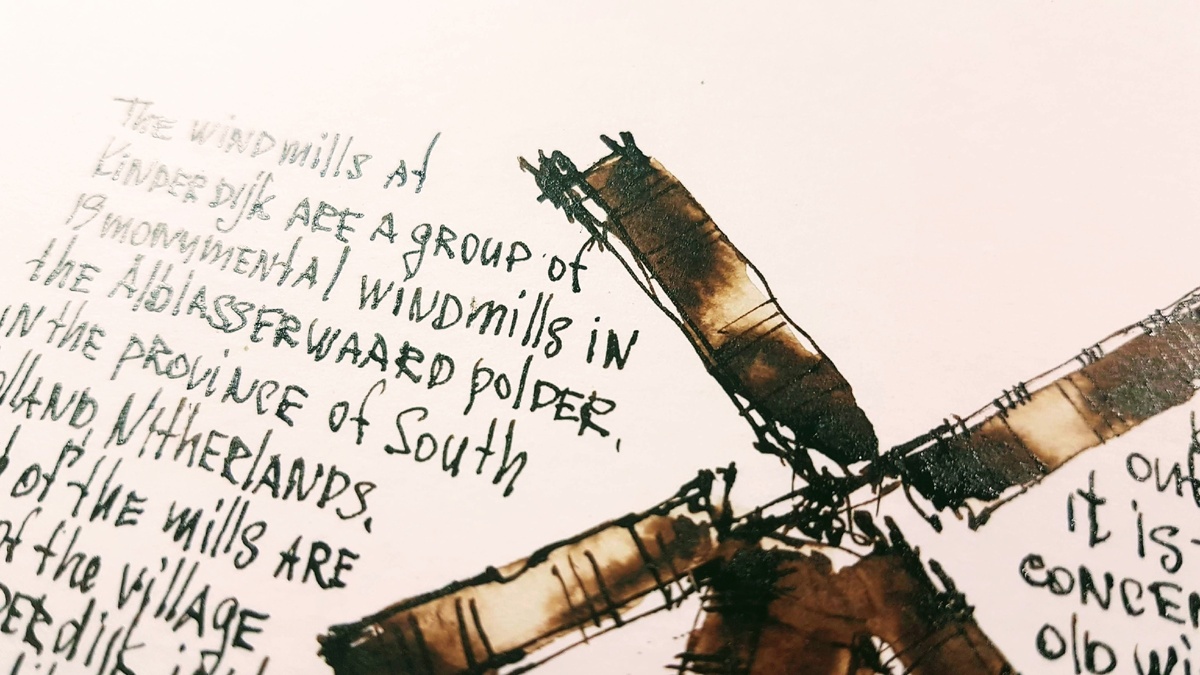 The windmills at
KinderDijk are a group of
19 monumental windmills in
the Alblasserwaard polder,
in the province of South
Ntherlands.
of the mills are
of the village
out
it is
old